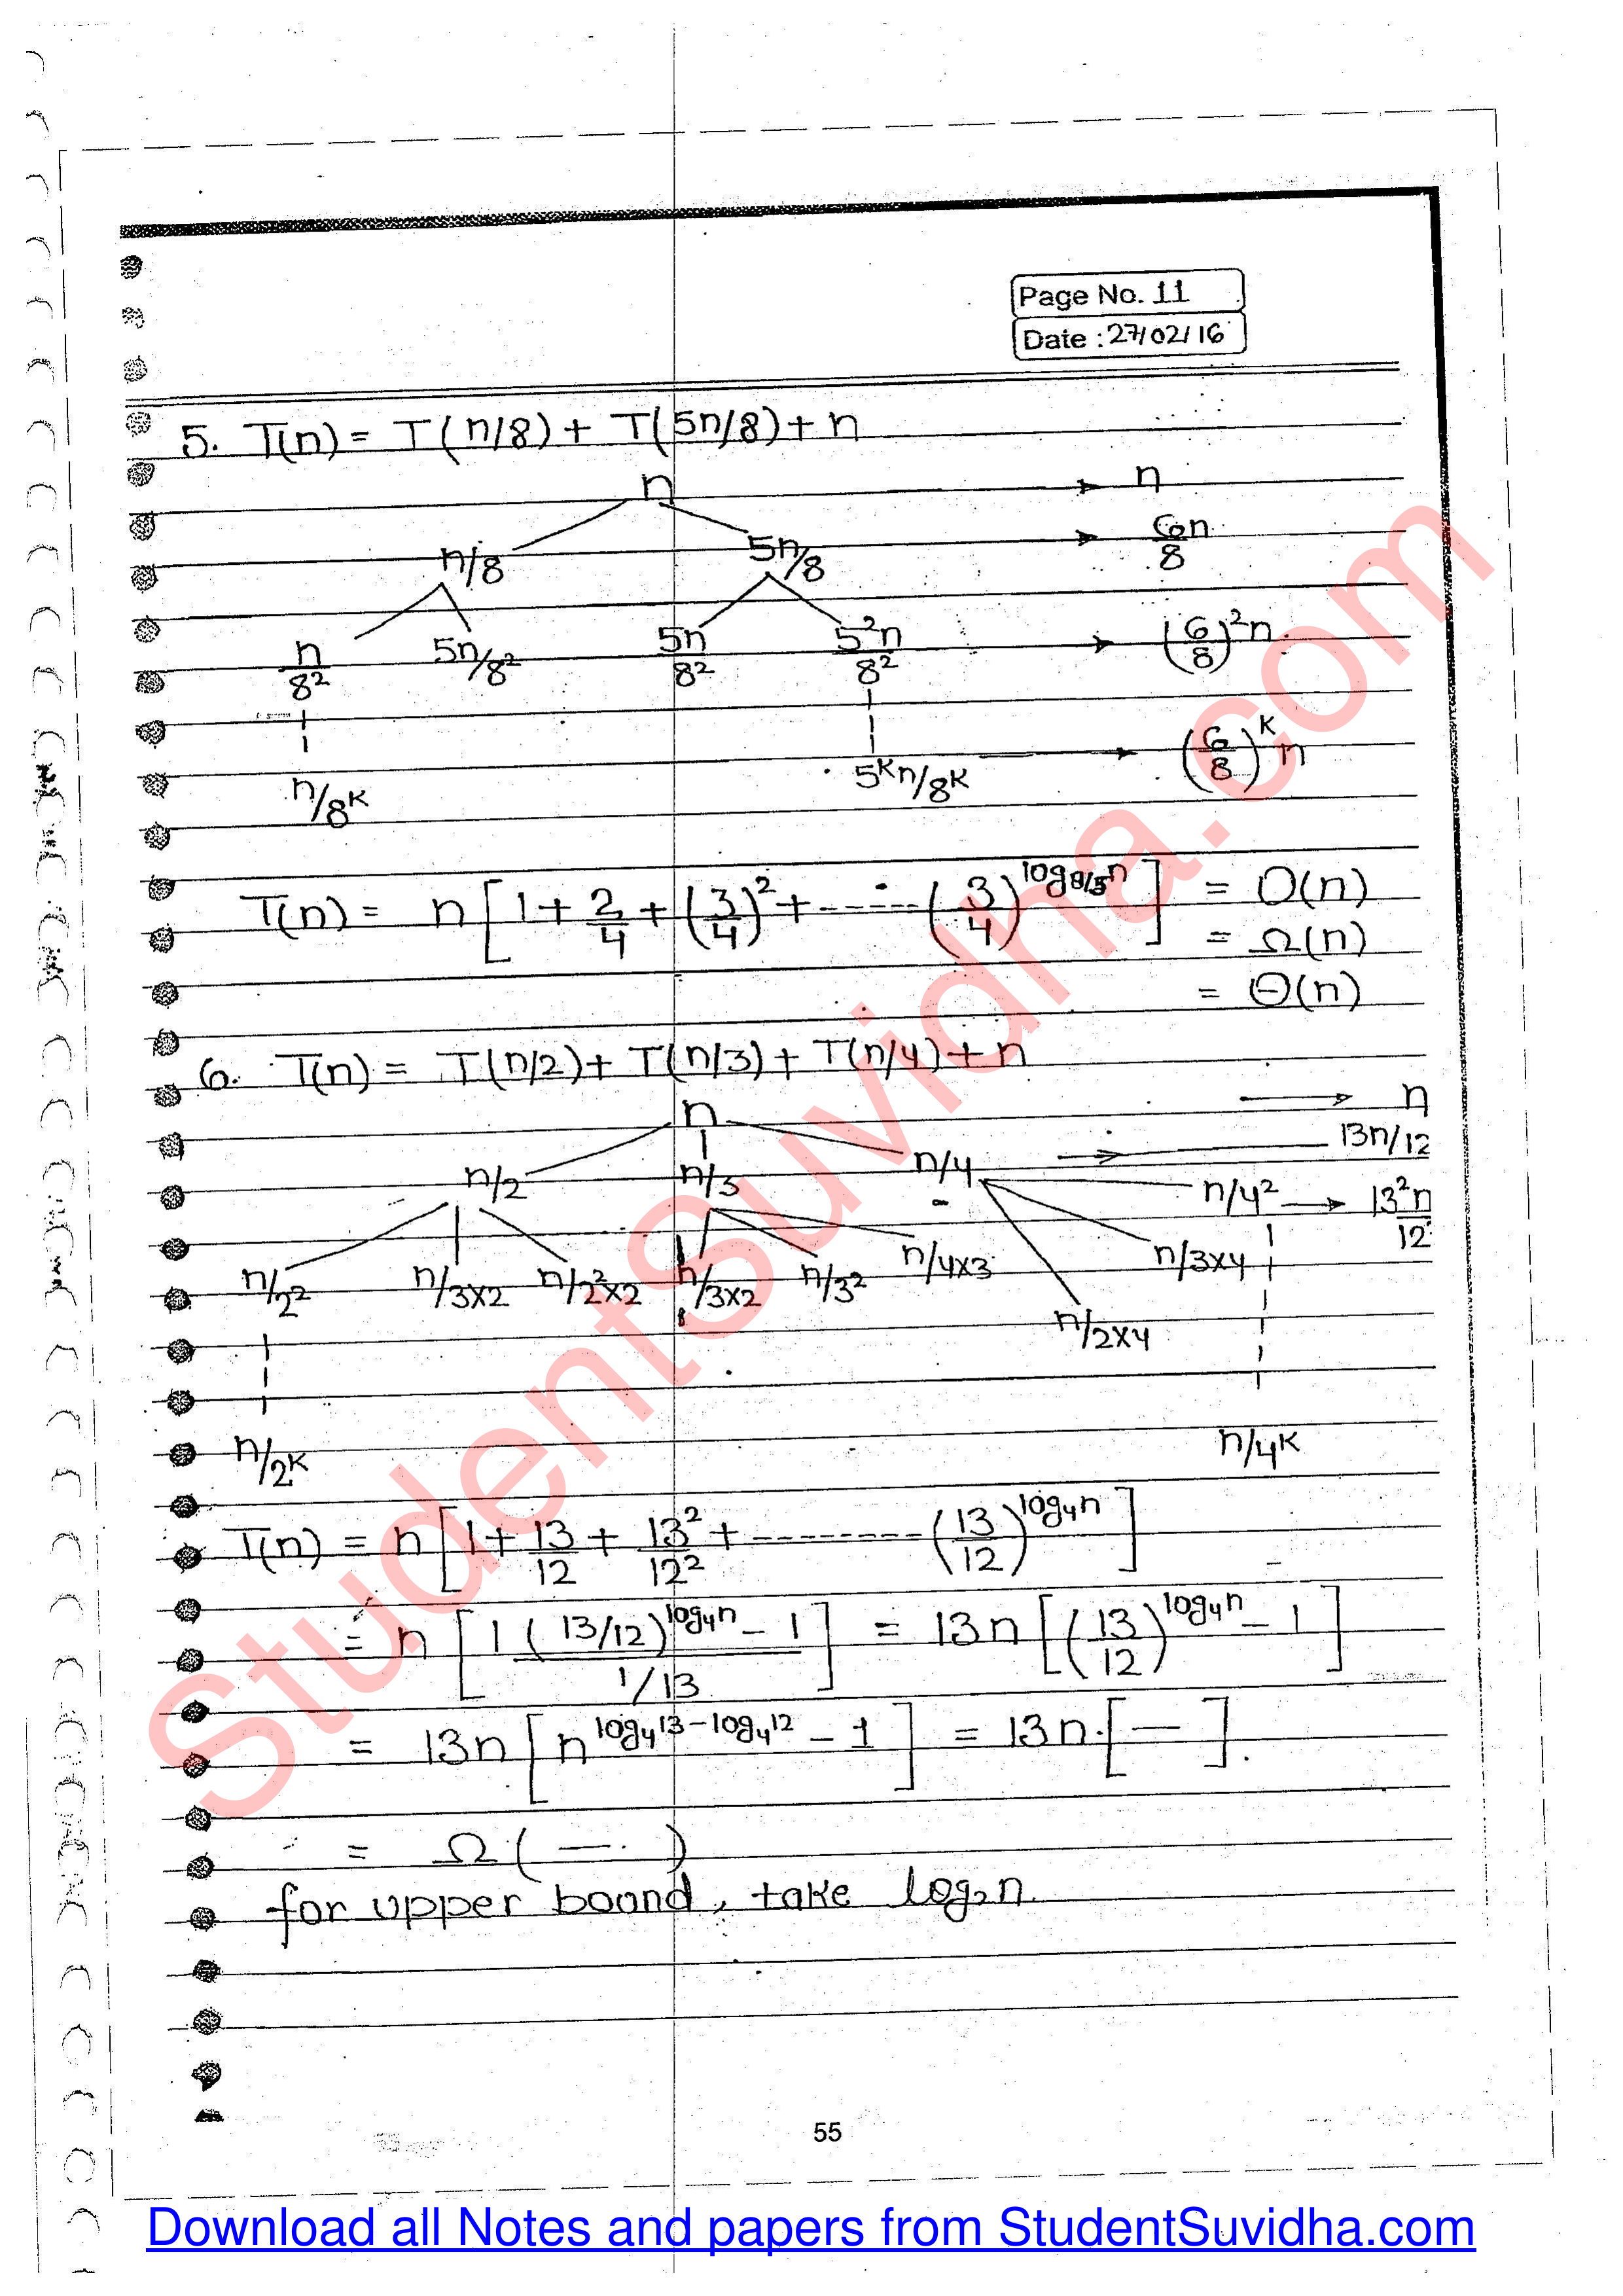 Page No. 11
Date : 27/02/16
5. T(n) = T(n/8) + T(5n/8) + n
n → n
n/8 5n/8 → 6n/8
n/8² 5n/8² 5n/8² 5²n/8² → (6/8)²n
n/8ᴷ 5ᴷn/8ᴷ → (6/8)ᴷ n
T(n) = n[1 + 2/4 + (3/4)² + ------ (3/4)^(log_{8/5} n)] = O(n)
= Ω(n)
= Θ(n)
6. T(n) = T(n/2) + T(n/3) + T(n/4) + n
n → n
n/2 n/3 n/4 → 13n/12
n/2² n/3x2 n/2²x2 n/3x2 n/3² n/4x3 n/2x4 n/3x4 n/4² → 13²n/12
n/2ᴷ n/4ᴷ
T(n) = n[1 + 13/12 + 13²/12² + -------- (13/12)^(log₄n)]
= n[1 ((13/12)^(log₄n) - 1)/(1/13)] = 13n[(13/12)^(log₄n) - 1]
= 13n[n^(log₄13 - log₄12) - 1] = 13n.[—].
= Ω(—)
for upper bound, take log₂n.
55
Download all Notes and papers from StudentSuvidha.com
StudentSuvidha.com